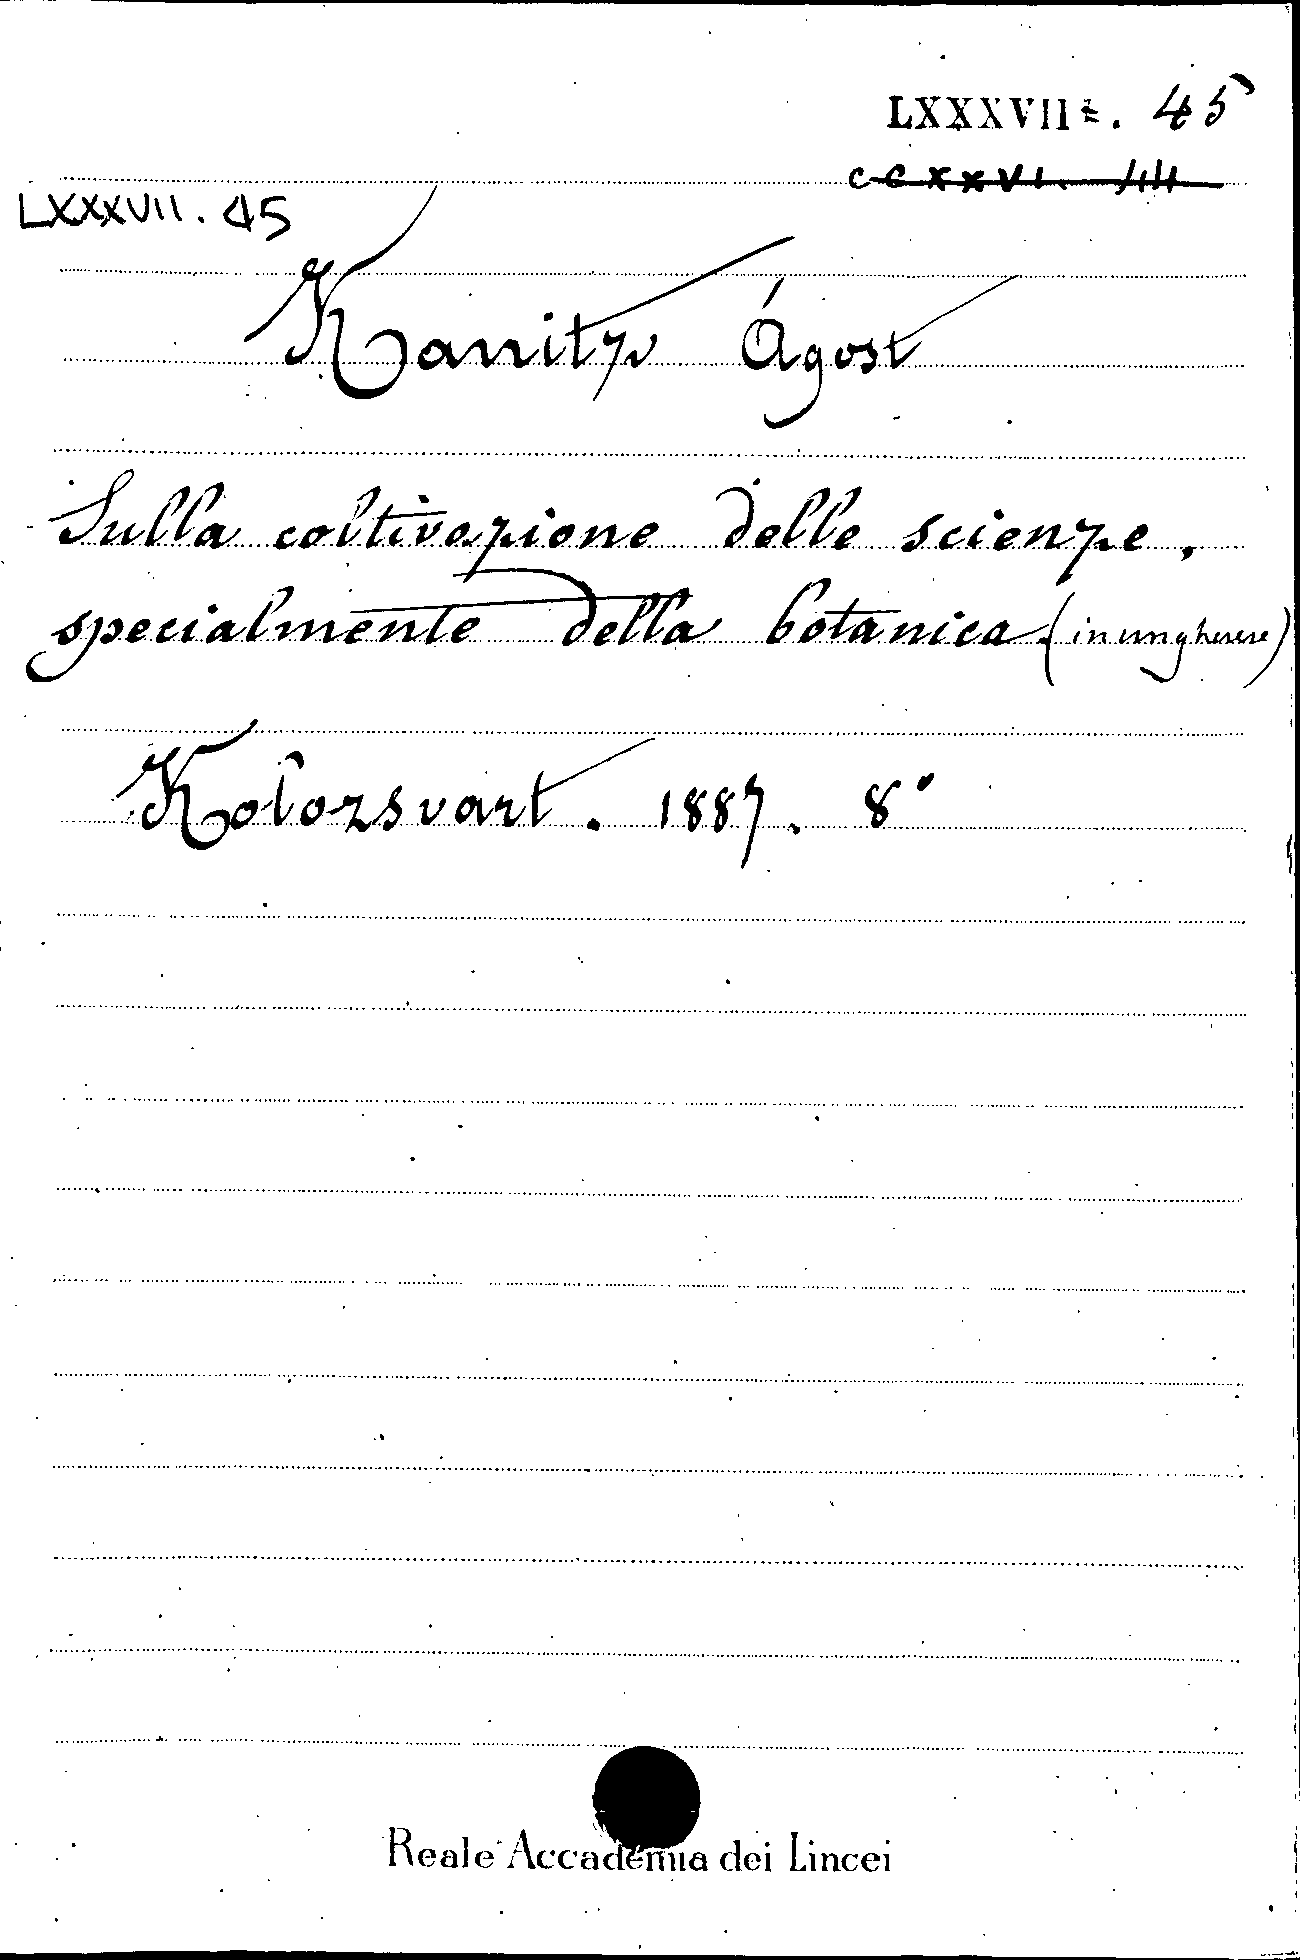 LXXXVII. 45
LXXXVII. 45
Kanitz Ágost
Sulla coltivazione delle scienze,
specialmente della botanica. (in ungherese)
Kolozsvart. 1887. 8°
Reale Accademia dei Lincei